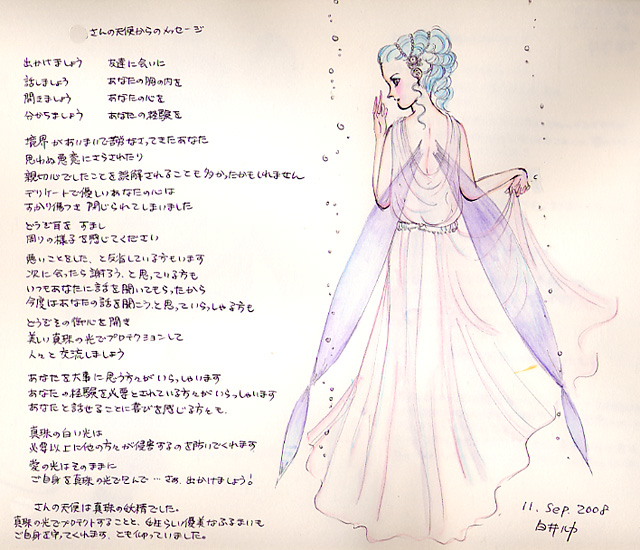 さんの天使からのメッセージ
出かけましょう 友達に会いに
話しましょう あなたの胸の内を
開きましょう あなたの心を
分かちましょう あなたの経験を
境界があいまいで苦労なさってきたあなた
思わぬ悪意にさらされたり
親切心でしたことを誤解されることも多かったかもしれません
デリケートで優しいあなたの心は
すっかり傷つき 閉じられてしまいました
どうぞ耳を すまし
周りの様子を感じてください
悪いことをした、と反省している方もいます
次に会ったら謝ろう、と思っている方も
いつもあなたに話を聞いてもらったから
今度はあなたの話を聞こう、と思っていらっしゃる方も
どうぞその御心を開き
美しい真珠の光でプロテクションして
人々と交流しましょう
あなたを大事に思う方々がいらっしゃいます
あなたの経験を必要とされている方々がいらっしゃいます
あなたと話せることに喜びを感じる方々も、
真珠の白い光は
必要以上に他の方々が侵害するのを防いでくれます
愛の光はそのままに
ご自身を真珠の光で包んで…さあ、出かけましょう!
さんの天使は真珠の妖精でした。
真珠の光でプロテクトすることと、女性らしい優美なふるまいも
ご自身を守ってくれます、とも仰っていました。
11. Sep. 2008
白井